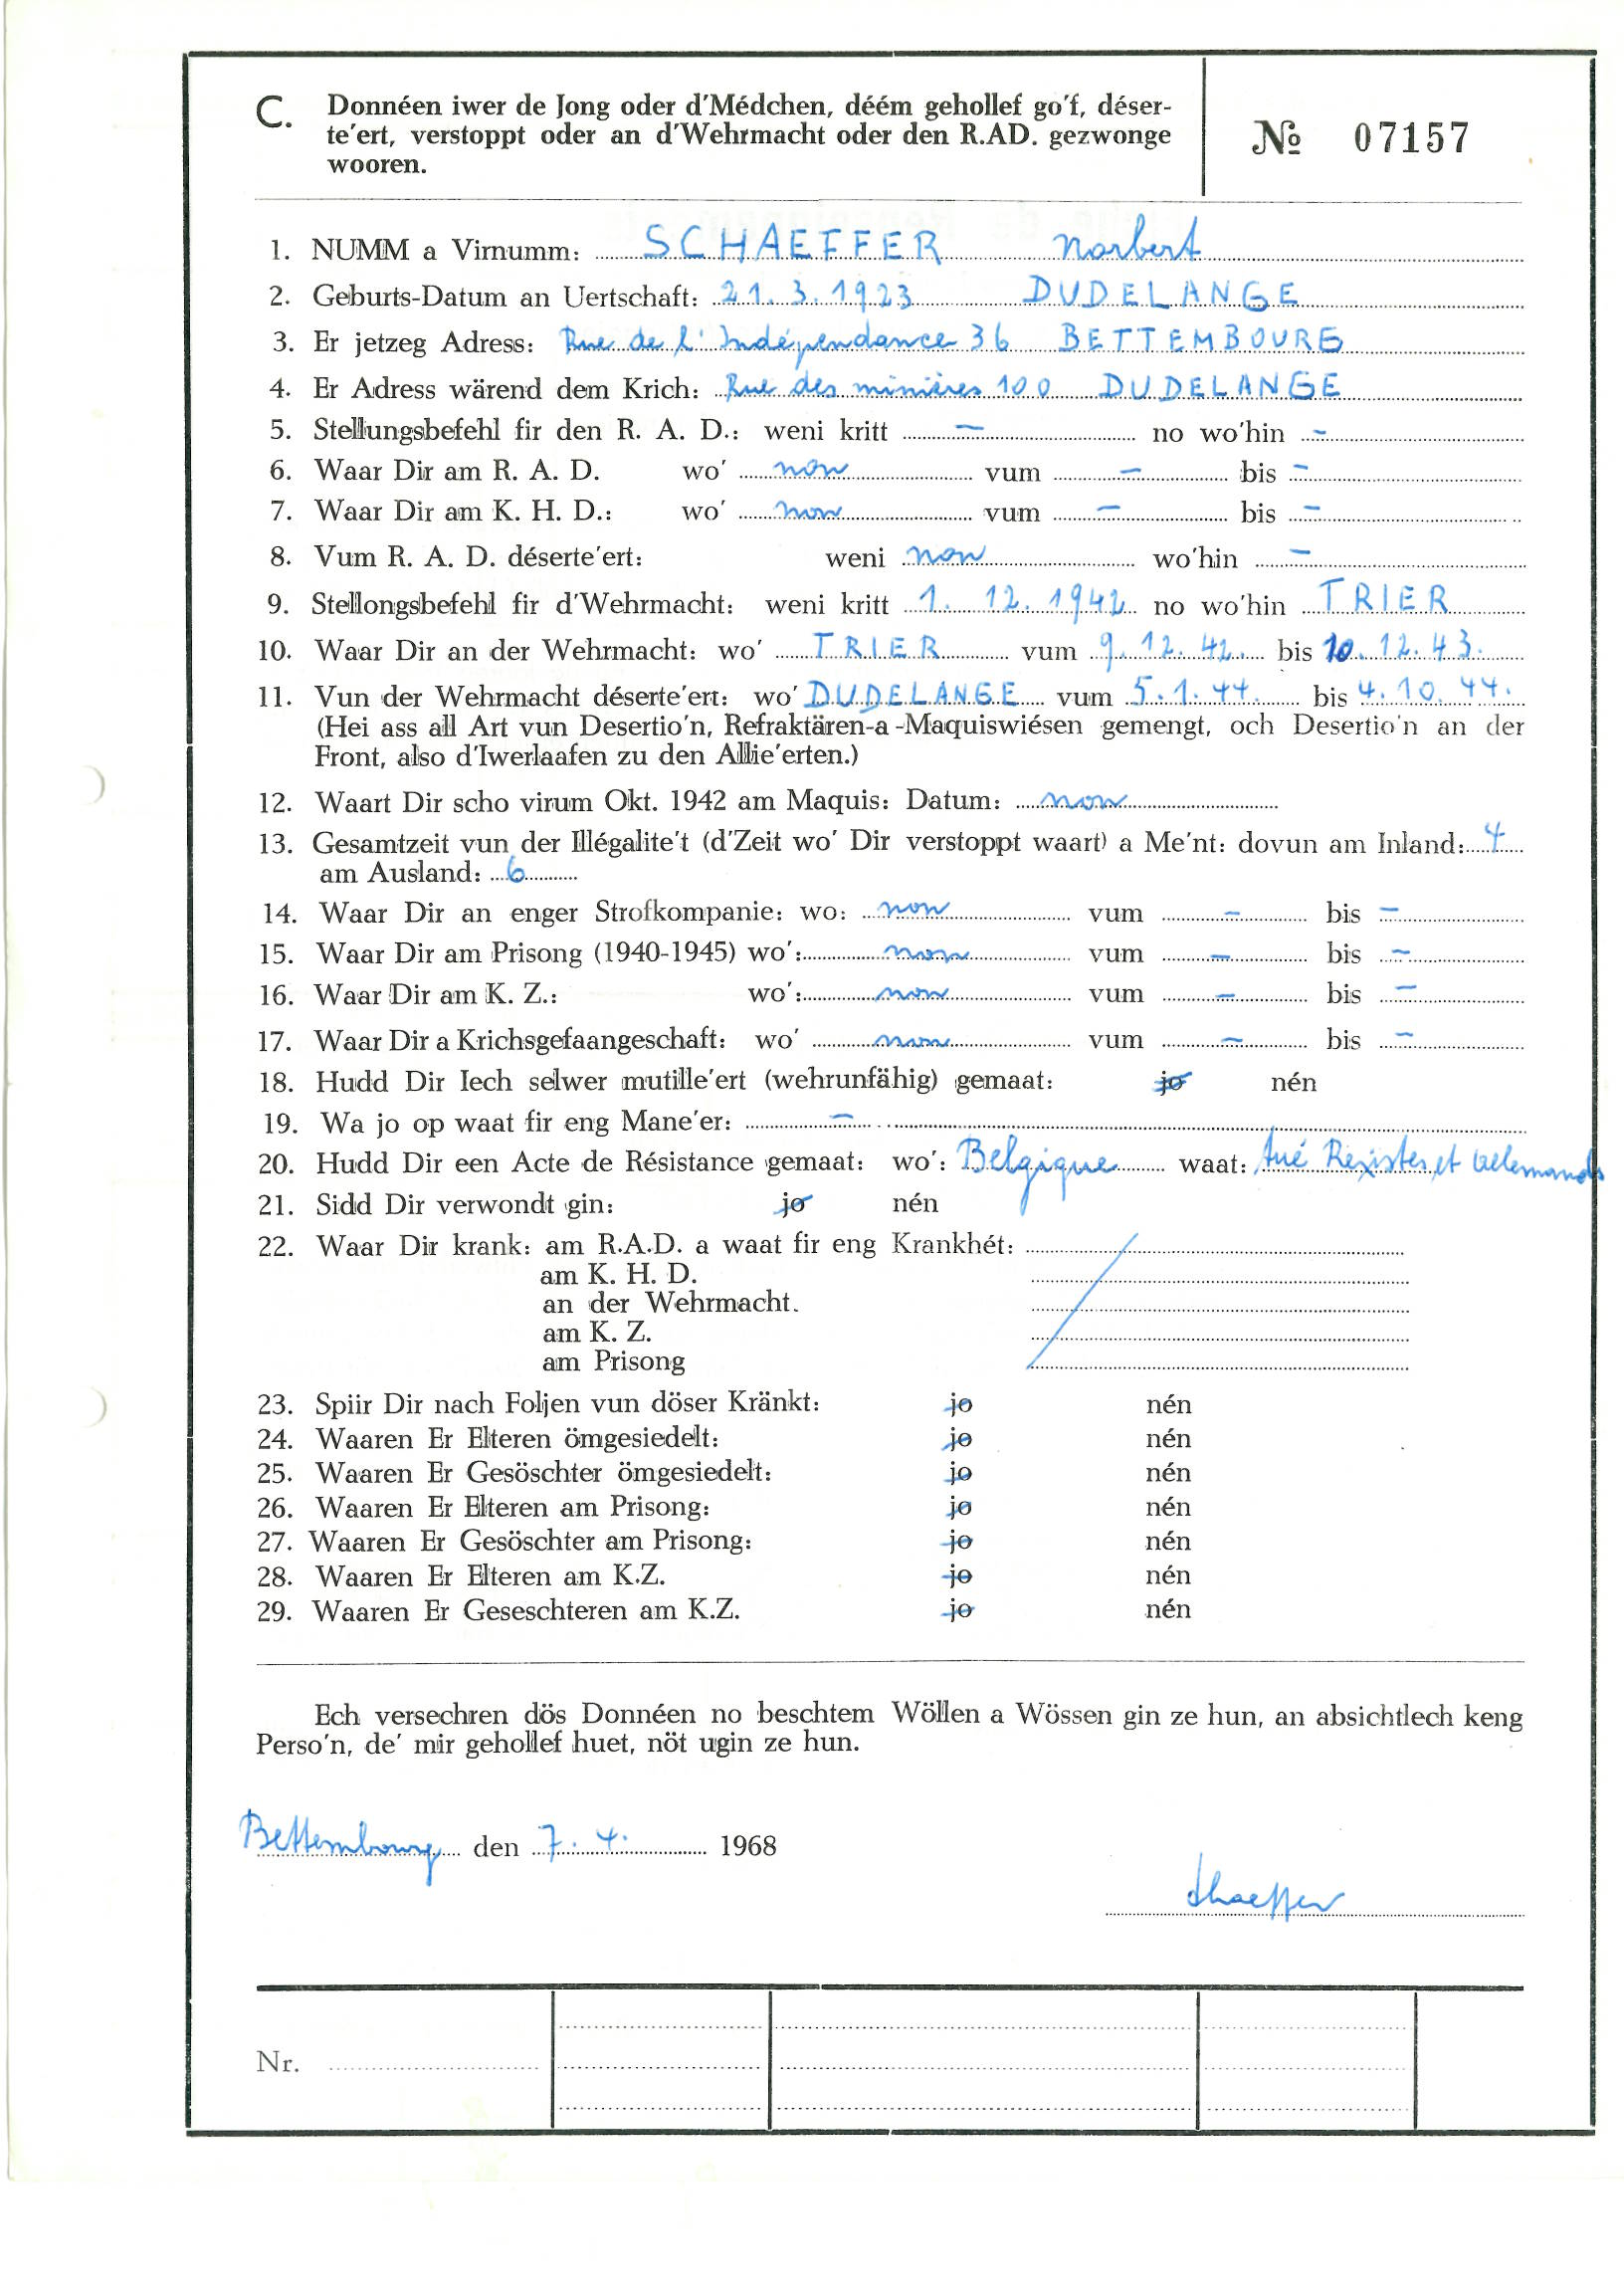 C. Donnéen iwer de Jong oder d'Médchen, déém gehollef go'f, déser-
te'ert, verstoppt oder an d'Wehrmacht oder den R.AD. gezwonge
wooren.
№ 07157
1. NUMM a Virnumm: SCHAEFFER Norbert
2. Geburts-Datum an Uertschaft: 21.3.1923 DUDELANGE
3. Er jetzeg Adress: Rue de l'Indépendance 36 BETTEMBOURG
4. Er Adress wärend dem Krich: Rue des minières 100 DUDELANGE
5. Stellungsbefehl fir den R. A. D.: weni kritt - no wo'hin -
6. Waar Dir am R. A. D. wo' non vum - bis -
7. Waar Dir am K. H. D.: wo' non vum - bis -
8. Vum R. A. D. déserte'ert: weni non wo'hin -
9. Stellongsbefehl fir d'Wehrmacht: weni kritt 1. 12. 1942 no wo'hin TRIER
10. Waar Dir an der Wehrmacht: wo' TRIER vum 9. 12. 42. bis 10. 12. 43.
11. Vun der Wehrmacht déserte'ert: wo' DUDELANGE vum 5.1.44. bis 4.10.44.
(Hei ass all Art vun Desertio'n, Refraktären-a-Maquiswiésen gemengt, och Desertio'n an der
Front, also d'Iwerlaafen zu den Allie'erten.)
12. Waart Dir scho virum Okt. 1942 am Maquis: Datum: non
13. Gesamtzeit vun der Illégalite't (d'Zeit wo' Dir verstoppt waart) a Me'nt: dovun am Inland: 4
am Ausland: 6
14. Waar Dir an enger Strofkompanie: wo: non vum - bis -
15. Waar Dir am Prisong (1940-1945) wo': non vum - bis -
16. Waar Dir am K. Z.: wo': non vum - bis -
17. Waar Dir a Krichsgefaangeschaft: wo' non vum - bis -
18. Hudd Dir Iech selwer mutille'ert (wehrunfähig) gemaat: jo nén
19. Wa jo op waat fir eng Mane'er: -
20. Hudd Dir een Acte de Résistance gemaat: wo': Belgique waat: tué Rexistes et allemands
21. Sidd Dir verwondt gin: jo nén
22. Waar Dir krank: am R.A.D. a waat fir eng Krankhét:
am K. H. D.
an der Wehrmacht.
am K. Z.
am Prisong
23. Spiir Dir nach Foljen vun döser Kränkt: jo nén
24. Waaren Er Elteren ömgesiedelt: jo nén
25. Waaren Er Gesöschter ömgesiedelt: jo nén
26. Waaren Er Elteren am Prisong: jo nén
27. Waaren Er Gesöschter am Prisong: jo nén
28. Waaren Er Elteren am K.Z. jo nén
29. Waaren Er Geseschteren am K.Z. jo nén
Ech versechren dös Donnéen no beschtem Wöllen a Wössen gin ze hun, an absichtlech keng
Perso'n, de' mir gehollef huet, nöt ugin ze hun.
Bettembourg den 7. 4. 1968
Schaeffer
Nr.